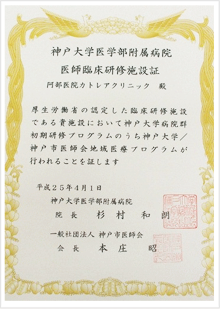 神戸大学医学部附属病院
医師臨床研修施設証
阿部医院カトレアクリニック 殿
厚生労働省の認定した臨床研修施設
である貴施設において神戸大学病院群
初期研修プログラムのうち神戸大学／
神戸市医師会地域医療プログラムが
行われることを証します
平成25年4月1日
神戸大学医学部附属病院
院長 杉村 和朗
一般社団法人 神戸市医師会
会長 本庄 昭